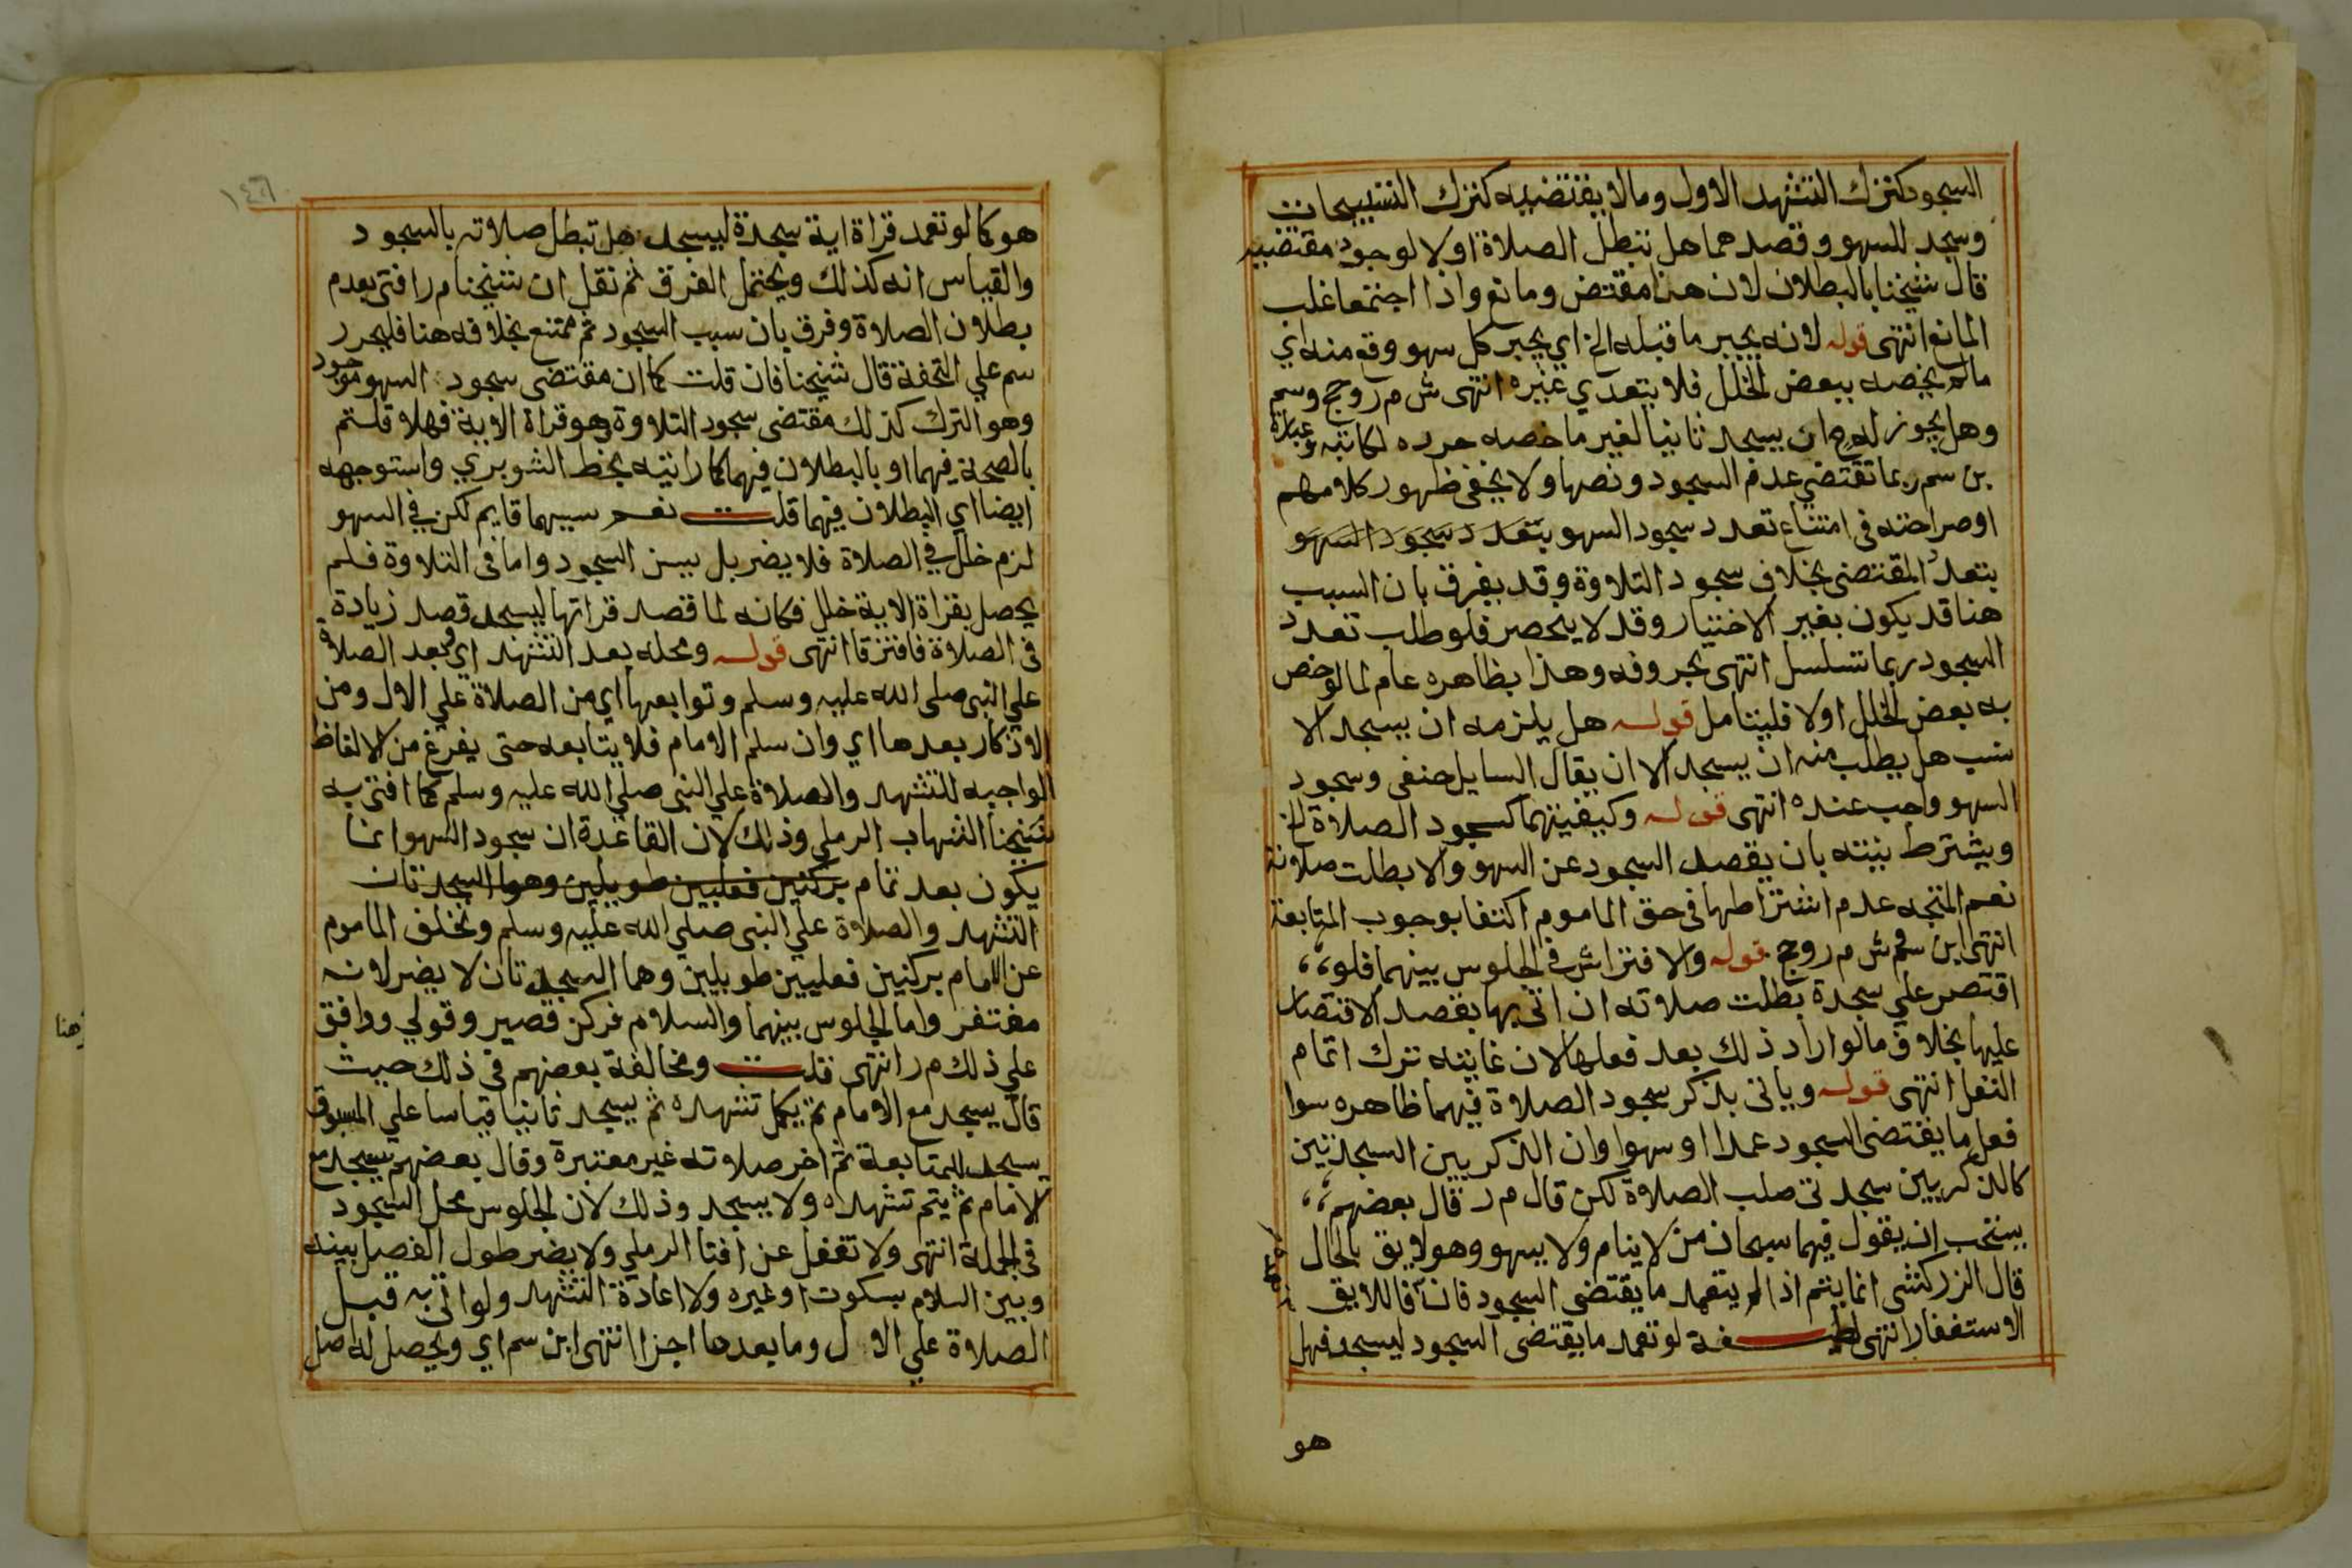 السجود كترك التشهد الاول وما لا يقتضيه كترك التسبيحات
وسجد للسهو وقصدهما هل تبطل الصلاة اولا لوجود مقتضيه
قال شيخنا بالبطلان لان هذا مقتض ومانع واذا اجتمعا غلب
المانع انتهى قوله لانه يجبر ما قبله الخ اي يجبر كل سهو وقع منه اي
مالم يخصه ببعض الخلل فلا يتعدي غيره انتهى ش م ر وحج وسم
وهل يجوز له ح ان يسجد ثانيا لغير ما خصه حرده لكاتبه وعبارة
بن سم ربما تقتضي عدم السجود ونصها ولا يخفى ظهور كلامهم
اوصراحته في امتناع تعدد سجود السهو بتعدد سجود السهو
بتعدد المقتضى بخلاف سجود التلاوة وقد يفرق بان السبب
هنا قد يكون بغير الاختيار وقد لا ينحصر فلو طلب تعدد
السجود ربما تسلسل انتهى بحروفه وهذا بظاهره عام لما لو خص
به بعض الخلل اولا فليتامل قوله هل يلزمه ان يسجد الا
نسب هل يطلب منه ان يسجد الا ان يقال السايل حنفى وسجود
السهو واجب عنده انتهى قوله وكيفيتهما كسجود الصلاة الخ
ويشترط نيته بان يقصد السجود عن السهو والا بطلت صلاته
نعم المتجه عدم اشتراطها في حق الماموم اكتفا بوجوب المتابعة
انتهى ابن سم وش م ر وحج قوله والافتراش في الجلوس بينهما فلو
اقتصر علي سجدة بطلت صلاته ان اتى بها بقصد الاقتصار
عليها بخلاف ما لو اراد ذلك بعد فعلها لان غايته ترك اتمام
النفل انتهى قوله وياتى بذكر سجود الصلاة فيهما ظاهره سوا
فعل ما يقتضى السجود عمدا او سهوا وان الذكر بين السجدتين
كالذكر بين سجدتى صلب الصلاة لكن قال م ر قال بعضهم
يستحب ان يقول فيهما سبحان من لا ينام ولا يسهو وهو لايق بالحال
قال الزركشى انما يتم اذا لم يتعمد ما يقتضى السجود فان فاللايق
الاستغفار انتهى لو تعمد ما يقتضى السجود ليسجد فهل
هو
١٤٦
هو كما لو تعمد قراة اية سجدة ليسجد هل تبطل صلاته بالسجود
والقياس انه كذلك ويحتمل الفرق ثم نقل ان شيخنا م ر افتى بعدم
بطلان الصلاة وفرق بان سبب السجود ثم ممتنع بخلافه هنا فليحرر
سم علي التحفة قال شيخنا فان قلت كما ان مقتضى سجود السهو موجود
وهو الترك كذلك مقتضى سجود التلاوة وهو قراة الاية فهلا قلتم
بالصحة فيهما او بالبطلان فيهما كما رايته بخط الشوبري واستوجهه
ايضا اي البطلان فيهما قلت نعم سببهما قايم لكن في السهو
لزم خلل في الصلاة فلا يضر بل يسن السجود واما في التلاوة فلم
يحصل بقراة الاية خلل فكانه لما قصد قراتها ليسجد قصد زيادة
في الصلاة فافترقا انتهى قوله ومحله بعد التشهد اي وبعد الصلاة
علي النبى صلى الله عليه وسلم وتوابعها اي من الصلاة علي الال ومن
الاذكار بعدها اي وان سلم الامام فلا يتابعه حتى يفرغ من الالفاظ
الواجبه للتشهد والصلاة علي النبي صلي الله عليه وسلم كما افتى به
شيخنا الشهاب الرملي وذلك لان القاعدة ان سجود السهو انما
يكون بعد تمام بركنين فعليين طويلين وهوا السجدتان
التشهد والصلاة علي النبى صلي الله عليه وسلم وتخلف الماموم
عن الامام بركنين فعليين طويلين وهما السجدتان لا يضر لانه
مغتفر واما الجلوس بينهما والسلام فركن قصير وقولي ووافق
علي ذلك م ر انتهى قلت ومخالفة بعضهم في ذلك حيث
قال يسجد مع الامام ثم يكمل تشهده ثم يسجد ثانيا قياسا علي المسبوق
يسجد للمتابعة ثم اخر صلاته غير معتبرة وقال بعضهم يسجد مع
الامام ثم يتم تشهده ولا يسجد وذلك لان الجلوس محل السجود
في الجملة انتهى ولا تغفل عن افتا الرملي ولا يضر طول الفصل بينه
وبين السلام بسكوت او غيره ولا اعادة التشهد ولو اتى به قبل
الصلاة علي الال وما بعدها اجزا انتهى ابن سم اي ويحصل له اصل